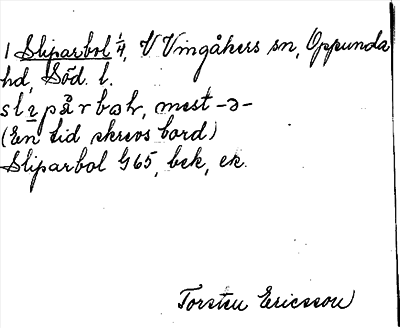 1 Sliparbol 1/4, V Vingåkers sn, Oppunda
hd, Söd. l.
slipårbωlr, mest -ə-
(En tid skrevs bord)
Sliparbol G65, bek, ek.
Torsten Ericsson